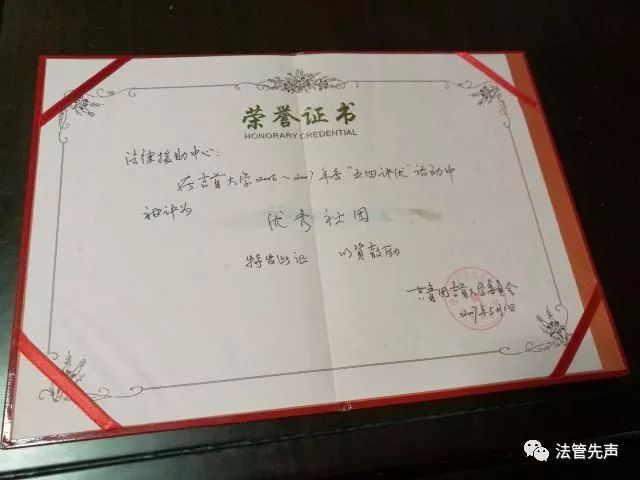 荣誉证书
HONORARY CREDENTIAL
法律援助中心：
在吉首大学2006~2007年度"五四评优"活动中
被评为 优秀社团
特发此证 以资鼓励
共青团吉首大学委员会
2007年5月 日
法管先声